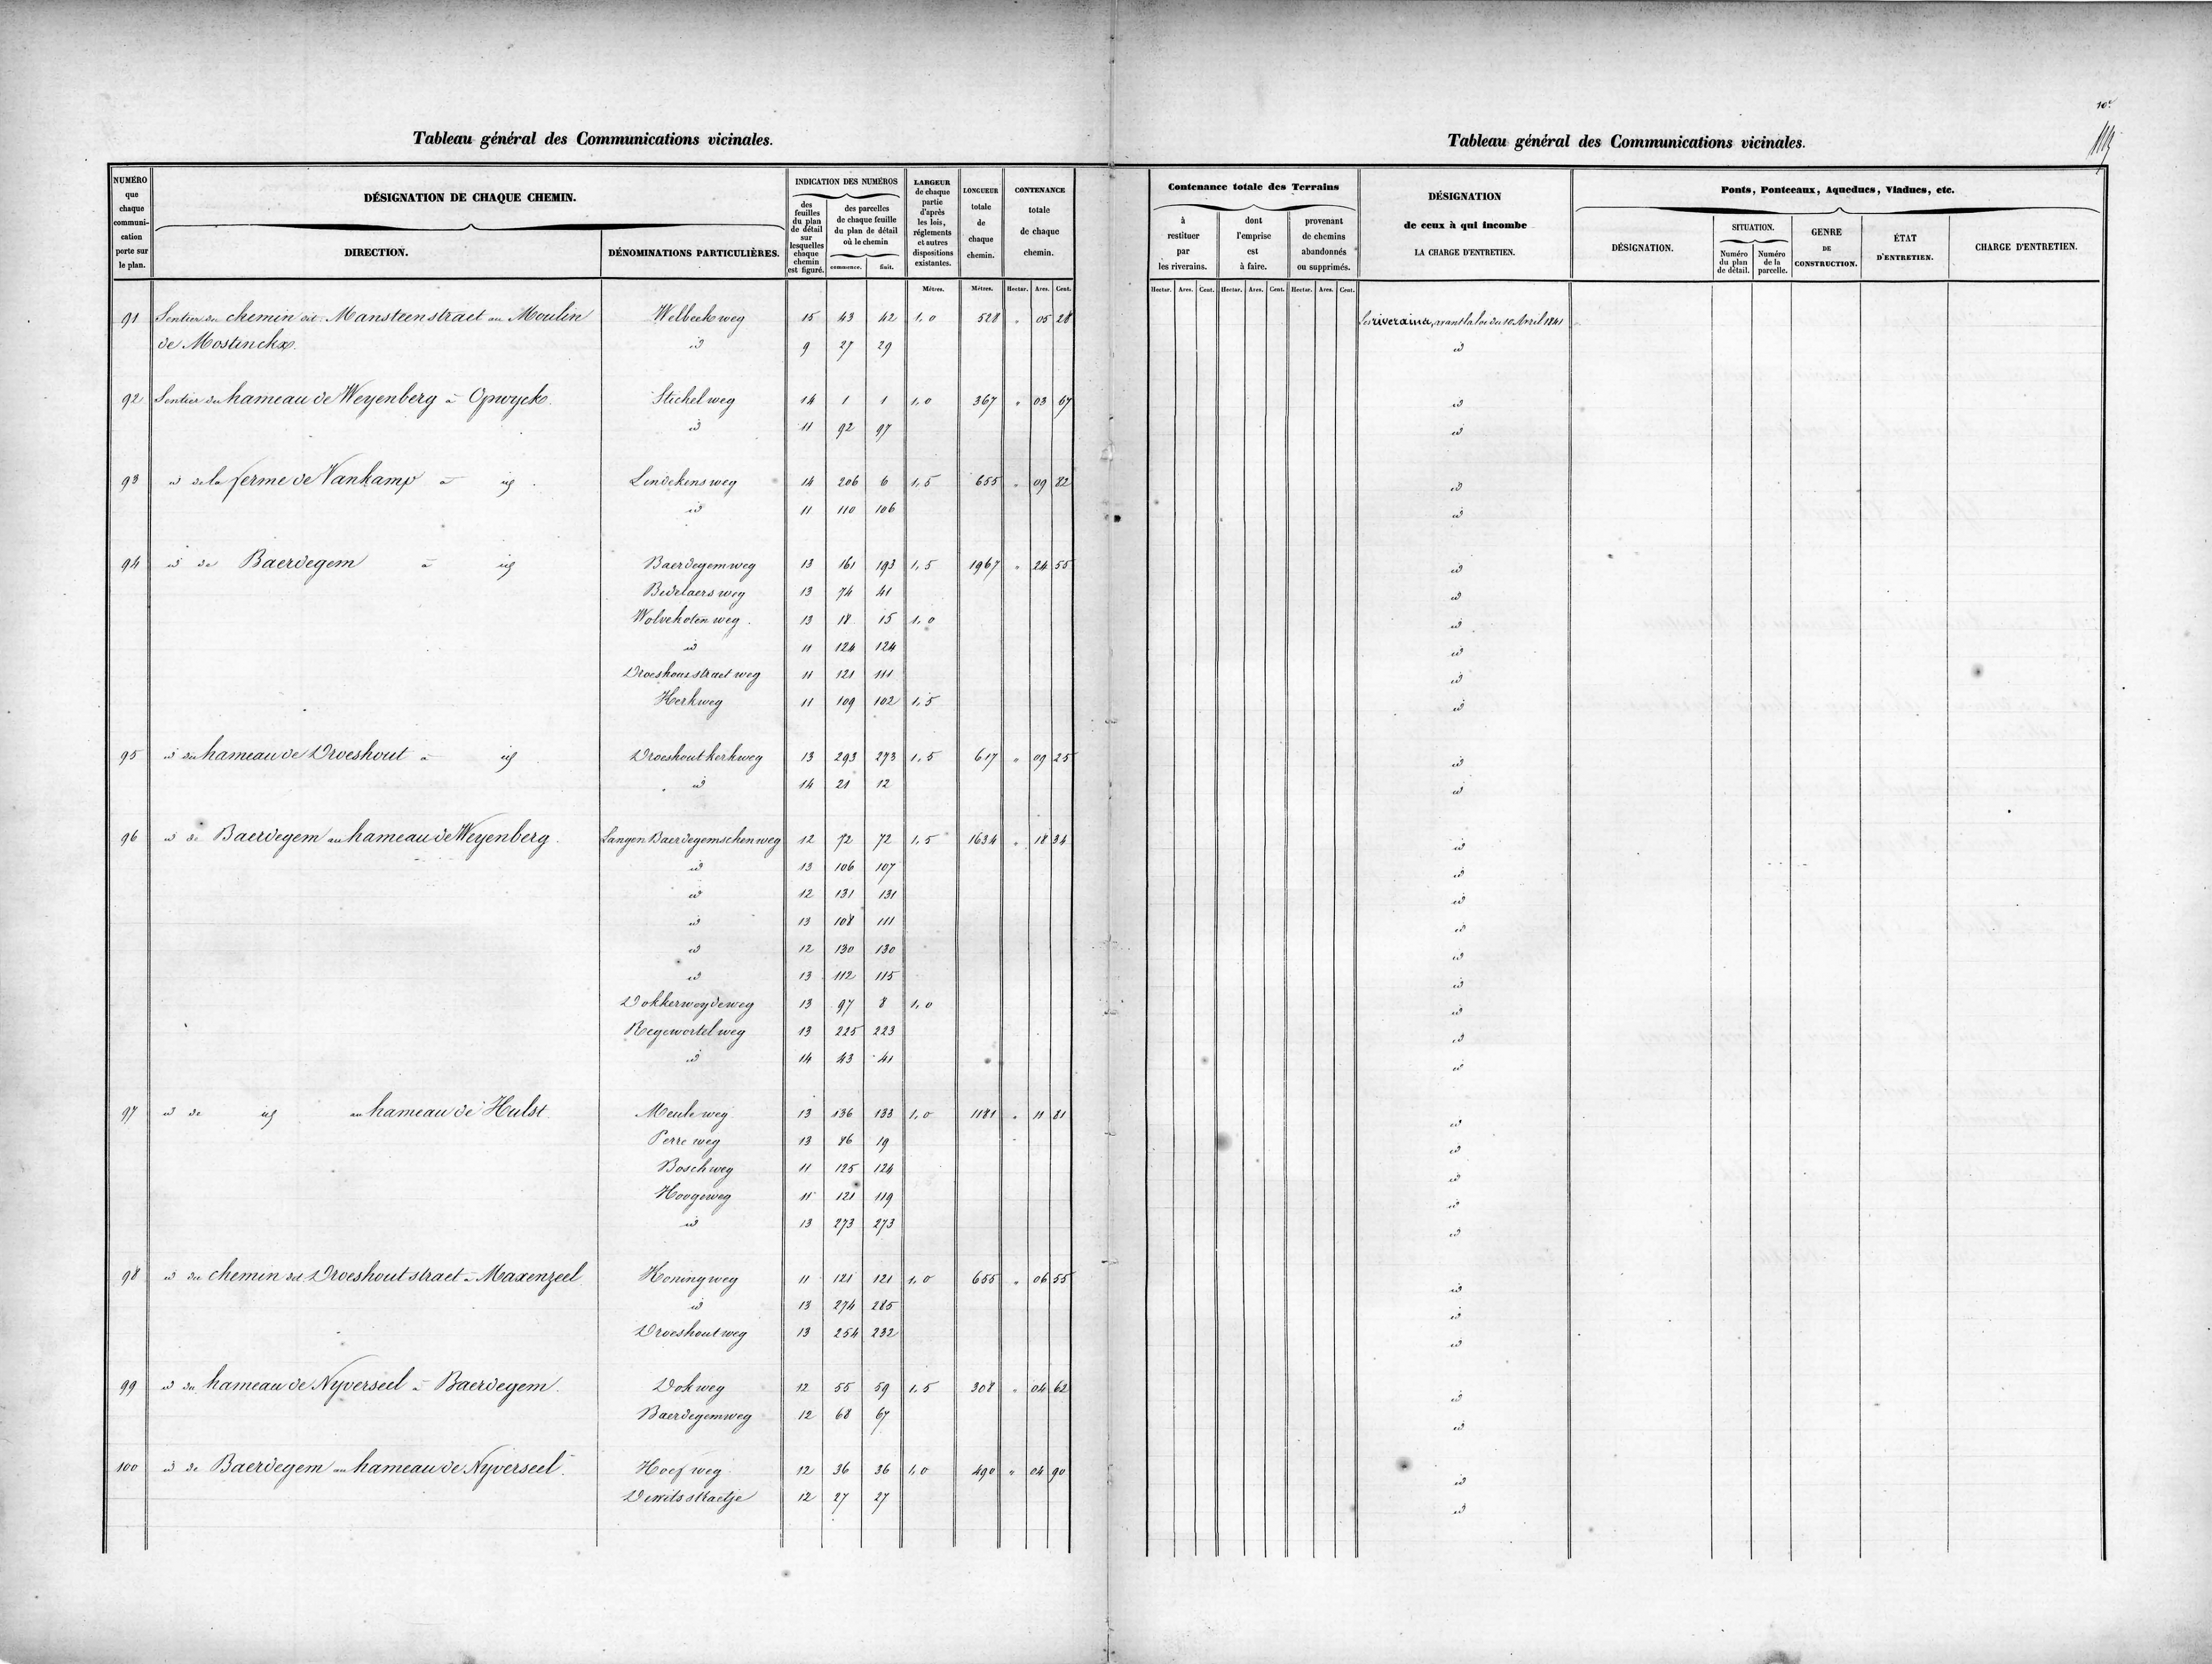 10e
Tableau général des Communications vicinales.
NUMÉRO que chaque communi-cation porte sur le plan.
DÉSIGNATION DE CHAQUE CHEMIN.
DIRECTION.
DÉNOMINATIONS PARTICULIÈRES.
INDICATION DES NUMÉROS
des feuilles du plan de détail sur lesquelles chaque chemin est figuré.
des parcelles de chaque feuille du plan de détail où le chemin
commence.
finit.
LARGEUR de chaque partie d'après les lois, réglements et autres dispositions existantes.
LONGUEUR totale de chaque chemin.
CONTENANCE totale de chaque chemin.
Mètres. Mètres. Hectar. Ares. Cent.
91 Sentier du chemin dit Mansteenstraet au Moulin Welbeek weg 15 43 42 1,0 528 " 05 28
de Mostinckx. id 9 27 29
92 Sentier du hameau de Weyenberg à Opwyck. Stichel weg 14 1 1 1,0 367 " 03 67
id 11 92 97
93 id de la ferme de Vankamp à id. Lindekens weg 14 206 6 1,5 655 " 09 82
id 11 110 106
94 id de Baerdegem à id Baerdegemweg 13 161 193 1,5 1967 " 24 55
Bedelaers weg 13 74 41
Wolveholen weg. 13 18 15 1,0
id 11 124 124
Droeshout straet weg 11 121 111
Kerkweg 11 109 102 1,5
95 id du hameau de Droeshout à id Droeshout kerkweg 13 293 273 1,5 617 " 09 25
id 14 21 12
96 id de Baerdegem au hameau de Weyenberg. Langen Baerdegemschen weg 12 72 72 1,5 1634 " 18 34
id 13 106 107
id 12 131 131
id 13 108 111
id 12 130 130
id 13 112 115
Dokkerweydeweg 13 97 8 1,0
Regewortel weg 13 225 223
id 14 43 41
97 id de id au hameau de Hulst. Meule weg 13 136 133 1,0 1181 " 11 81
Perre weg 13 86 19
Bosch weg 11 125 124
Hoogeweg 11 121 119
id 13 273 273
98 id du chemin dit Droeshout straet à Maxenzeel Koning weg 11 121 121 1,0 655 " 06 55
id 13 274 285
Droeshout weg 13 254 232
99 id du hameau de Nyverseel à Baerdegem. Dok weg 12 55 59 1,5 308 " 04 62
Baerdegemweg 12 68 67
100 id de Baerdegem au hameau de Nyverseel. Hoef weg 12 36 36 1,0 490 " 04 90
Dewits straetje 12 27 27
Tableau général des Communications vicinales.
Contenance totale des Terrains
à restituer par les riverains.
dont l'emprise est à faire.
provenant de chemins abandonnés ou supprimés.
DÉSIGNATION
de ceux à qui incombe
LA CHARGE D'ENTRETIEN.
Ponts, Pontceaux, Aqueducs, Viaducs, etc.
DÉSIGNATION.
SITUATION.
Numéro du plan de détail.
Numéro de la parcelle.
GENRE DE CONSTRUCTION.
ÉTAT D'ENTRETIEN.
CHARGE D'ENTRETIEN.
Hectar. Ares. Cent. Hectar. Ares. Cent. Hectar. Ares. Cent.
Les riverains, avant la loi du 10 Avril 1841
id
id
id
id
id
id
id
id
id
id
id
id
id
id
id
id
id
id
id
id
id
id
id
id
id
id
id
id
id
id
id
id
id
id
id